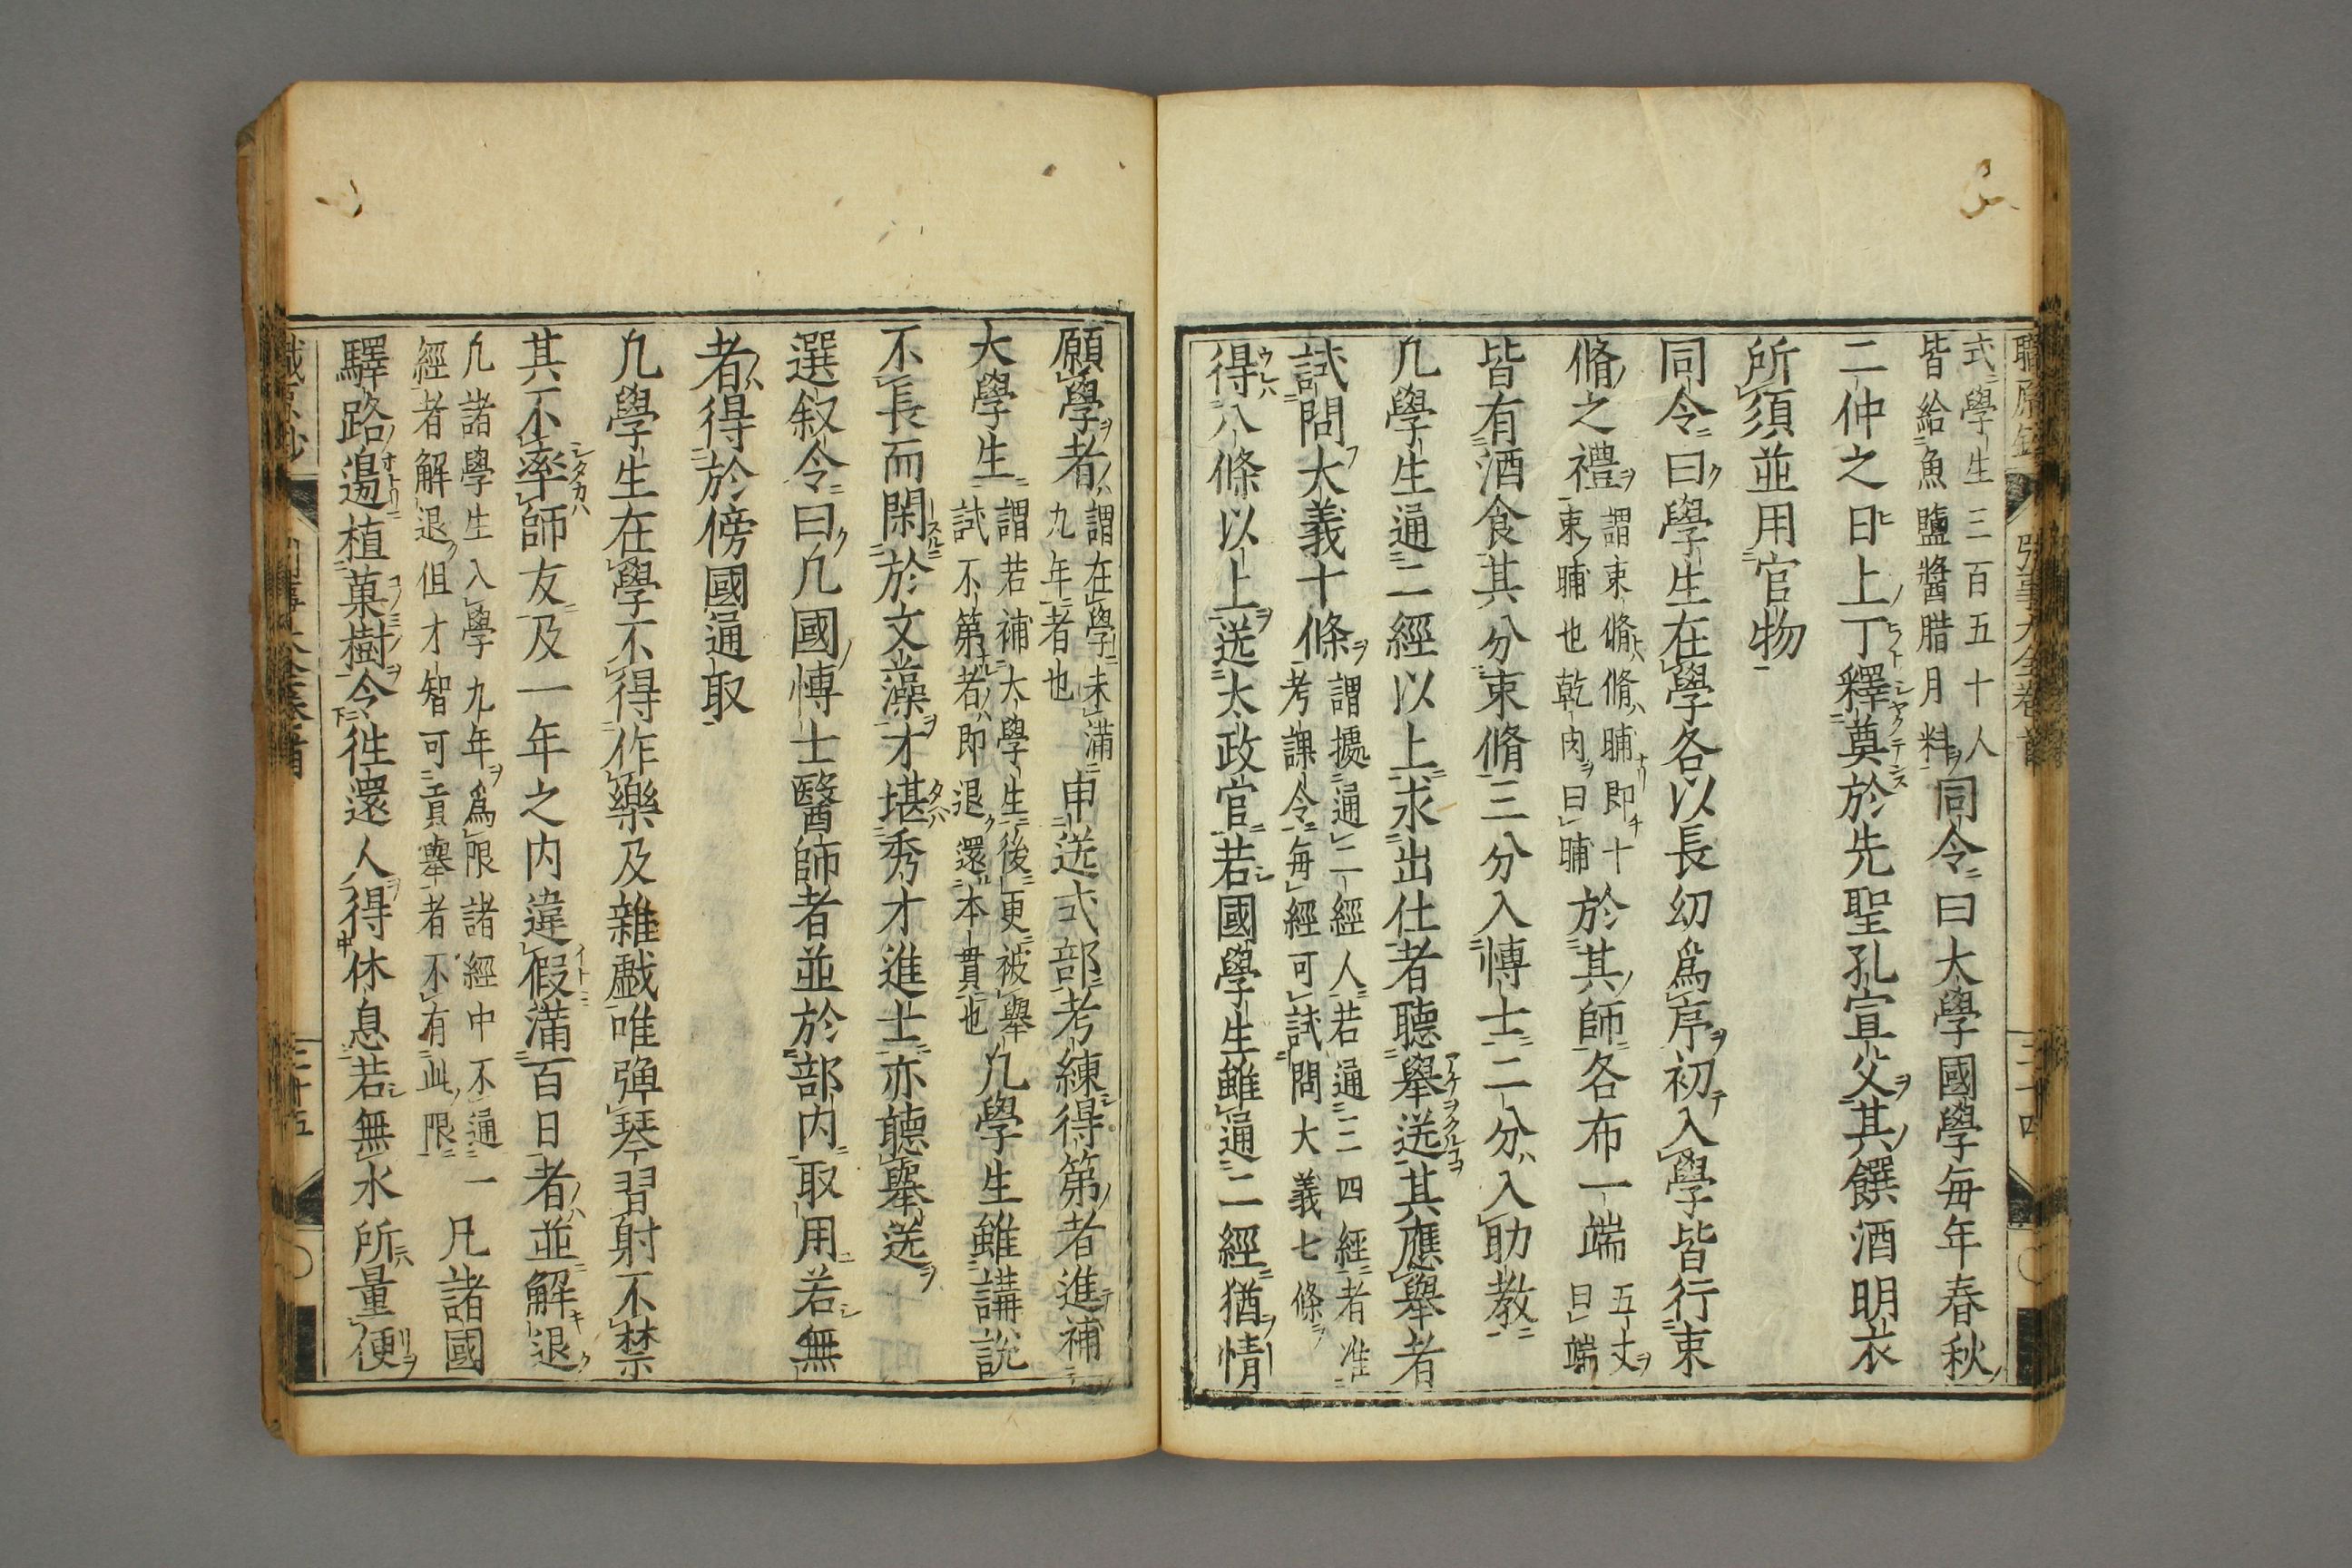 式學生三百五十人
皆給魚鹽醬腊月料同令曰大學國學每年春秋
二仲之日上丁釋奠於先聖孔宣父其饌酒明衣
所須並用官物
同令曰學生在學各以長幼爲序初入學皆行束
脩之禮謂束脩脩脯即十
束脯也乾肉曰脯於其師各布一端五丈
曰端
皆有酒食其分束脩三分入博士二分入助教
凢學生通二經以上求出仕者聽舉送其應舉者
試問大義十條謂據通二經人若通三四經者准
考課令每經可試問大義七條
得八條以上送太政官若國學生雖通二經猶情
願學者謂在學未滿
九年者也申送式部考練得第者進補
大學生謂若補大學生後更被舉
試不第者即退還本貫也凢學生雖講説
不長而閑於文藻才堪秀才進士亦聽舉送
選叙令曰凢國博士醫師者並於部内取用若無
者得於傍國通取
凢學生在學不得作樂及雜戯唯弾琴習射不禁
其不率師友及一年之内違假滿百日者並解退
凢諸學生入學九年爲限諸經中不通一
經者解退但才智可貢舉者不有此限凡諸國
驛路邊植菓樹令往還人得休息若無水所量便